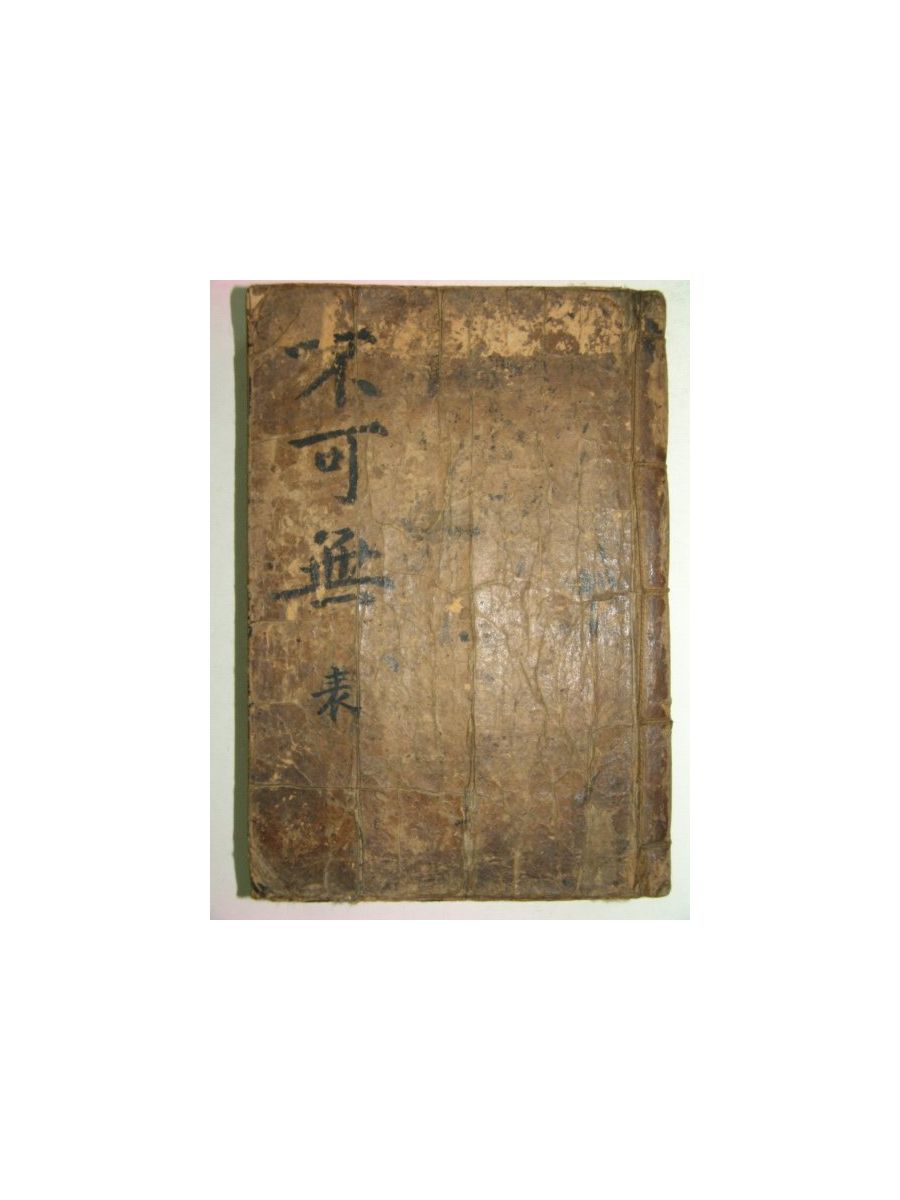 不可無 表